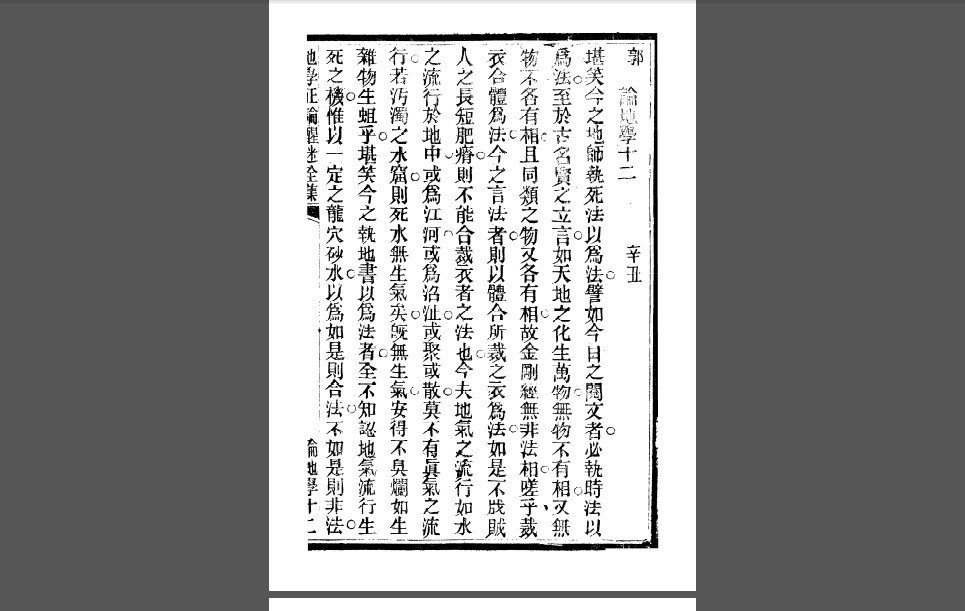 郭 論地學十二 辛丑
堪笑今之地師執死法以爲法譬如今日之閱文者必執時法以
爲法至於古名賢之立言如天地之化生萬物無物不有相又無
物不各有相且同類之物又各有相故金剛經無非法相嗟乎裁
衣合體爲法今之言法者則以體合所裁之衣爲法如是不戕賊
人之長短肥瘠則不能合裁衣者之法也今夫地氣之流行如水
之流行於地中或爲江河或爲沼沚或聚或散莫不有眞氣之流
行若汚濁之水窟則死水無生氣矣旣無生氣安得不臭爛如生
雜物生蛆乎堪笑今之執地書以爲法者全不知認地氣流行生
死之機惟以一定之龍穴砂水以爲如是則合法不如是則非法
地學正論醒迷全集 論地學十二